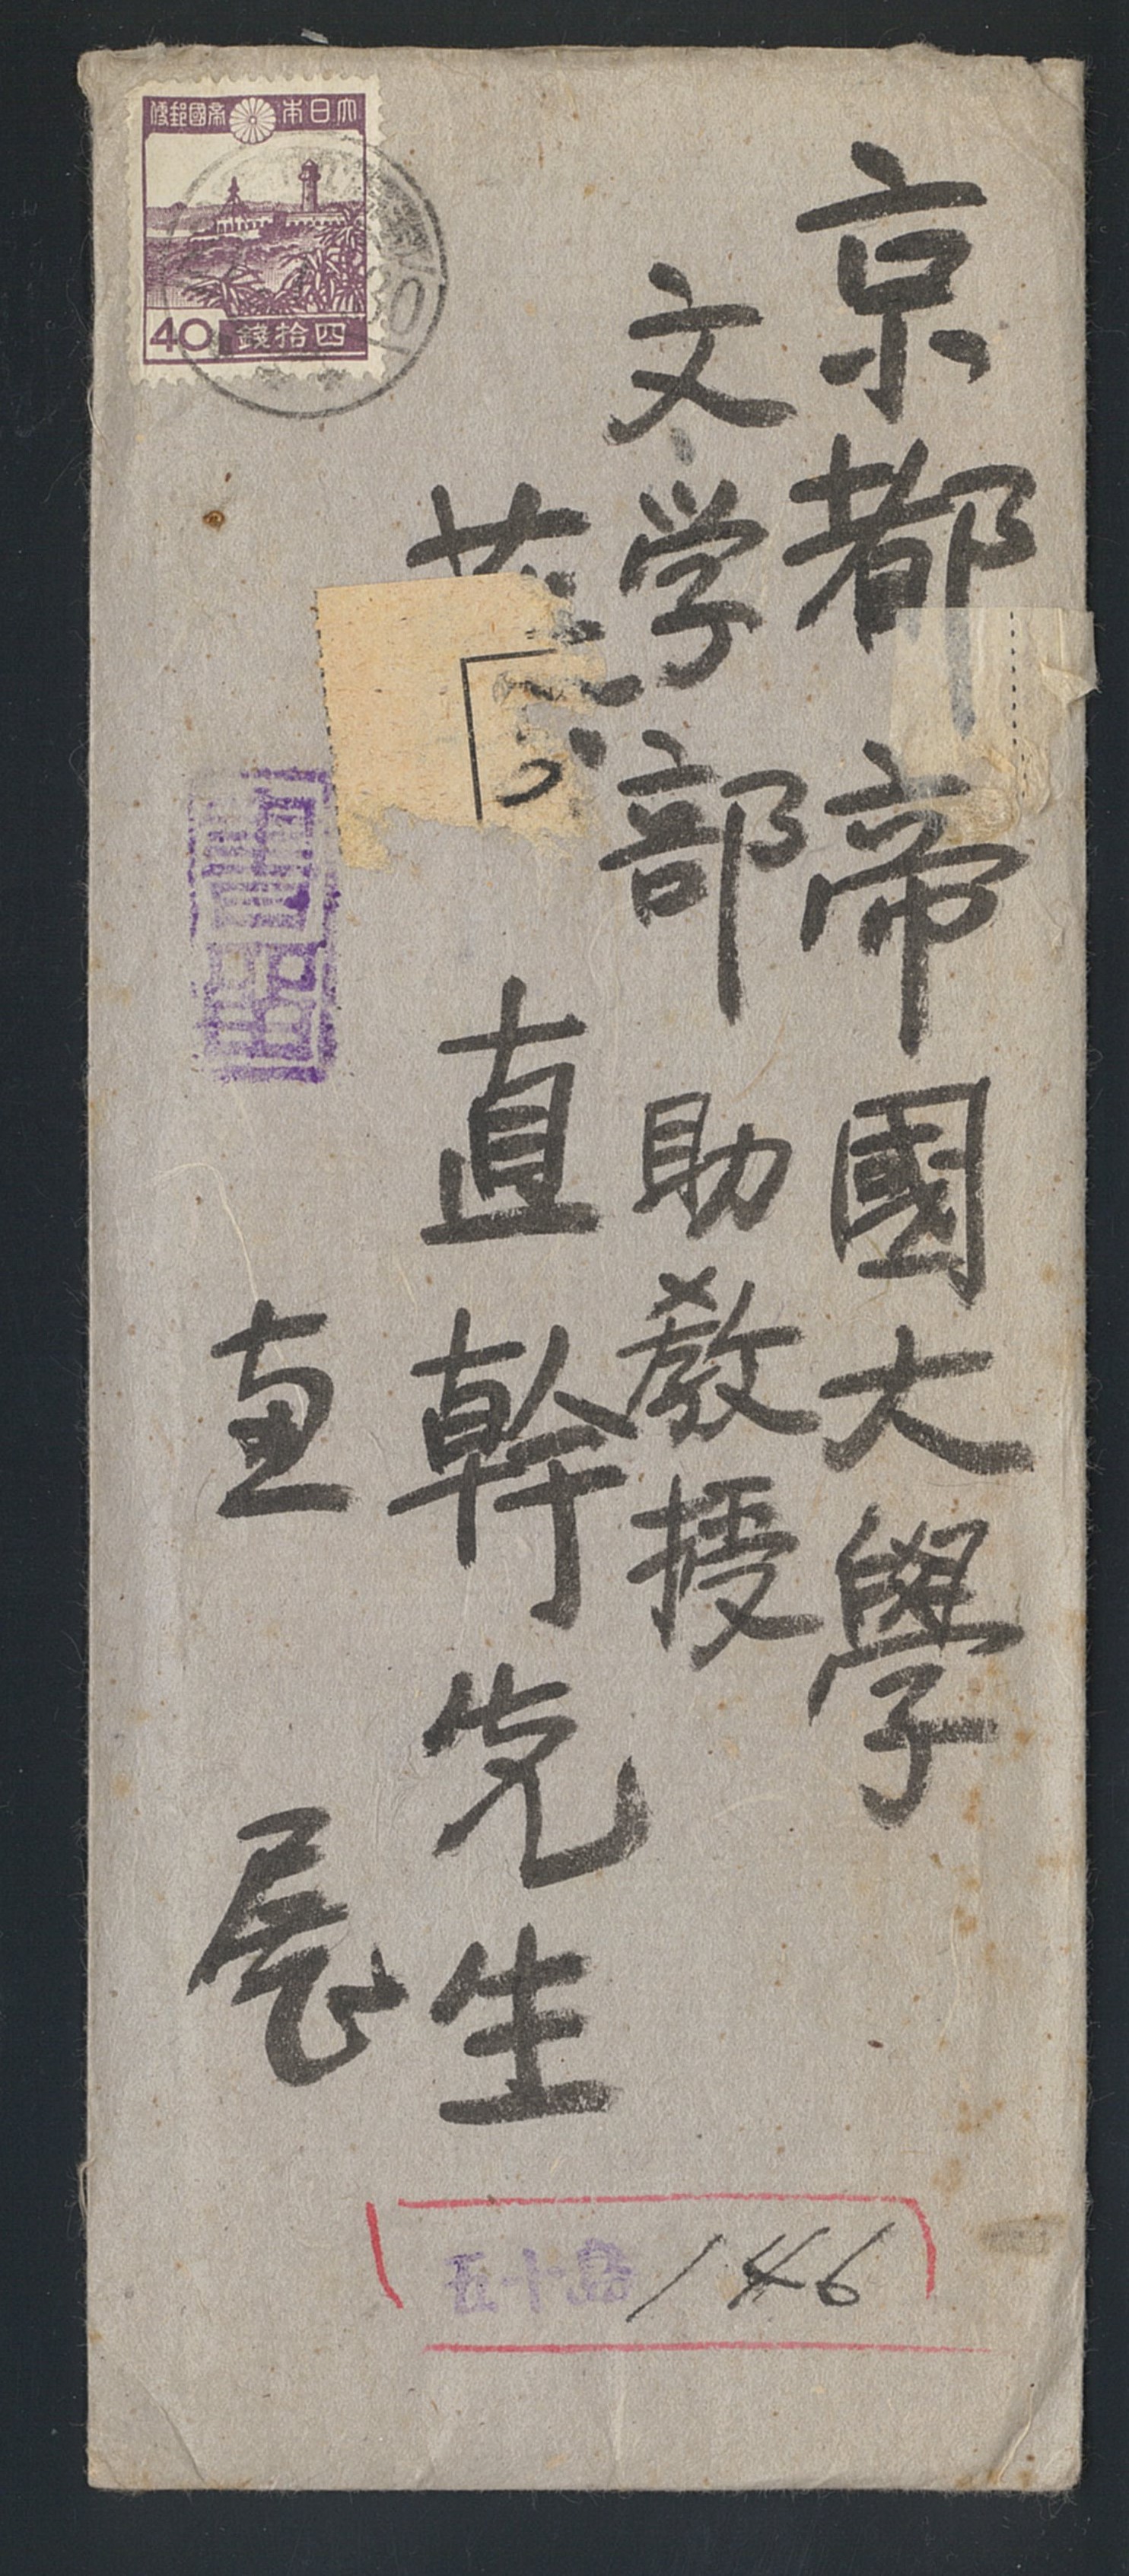 京都帝國大學
文学部 助教授
直幹先生
直展
大日本帝國郵便
40 四拾錢
書留
五十 146